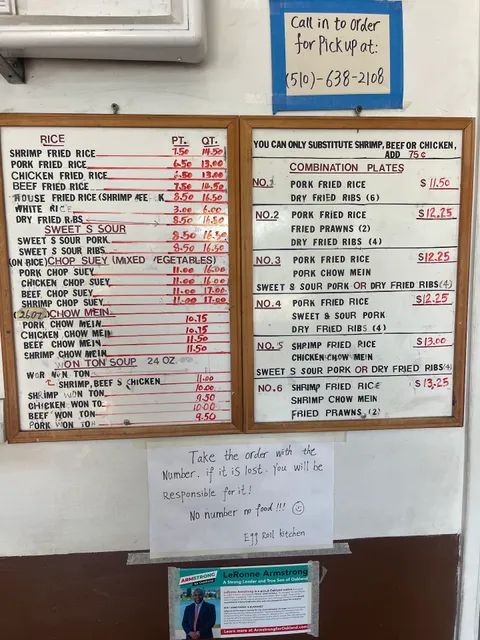 Call in to order
for Pickup at:
(510)-638-2108
RICE PT. QT.
SHRIMP FRIED RICE 7.50 14.50
PORK FRIED RICE 6.50 13.00
CHICKEN FRIED RICE 6.50 13.00
BEEF FRIED RICE 7.50 14.50
HOUSE FRIED RICE (SHRIMP EE K 8.50 16.50
WHITE RICE 3.00 6.00
DRY FRIED RIBS 8.50 16.50
SWEET S SOUR
SWEET S SOUR PORK 8.50 16.50
SWEET S SOUR RIBS 8.50 16.50
(ON RICE) CHOP SUEY (MIXED VEGETABLES)
PORK CHOP SUEY 11.00 16.00
CHICKEN CHOP SUEY 11.00 16.00
BEEF CHOP SUEY 11.00 17.00
SHRIMP CHOP SUEY 11.00 17.00
(26OZ.) CHOW MEIN
PORK CHOW MEIN 10.75
CHICKEN CHOW MEIN 10.75
BEEF CHOW MEIN 11.50
SHRIMP CHOW MEIN 11.50
WON TON SOUP 24 OZ.
WOR WON TON
SHRIMP, BEEF S CHICKEN 11.00
SHRIMP WON TON 10.00
CHICKEN WON TO 9.50
BEEF WON TON 10.00
PORK WON TON 9.50
YOU CAN ONLY SUBSTITUTE SHRIMP, BEEF OR CHICKEN,
ADD 75¢
COMBINATION PLATES
NO. 1 PORK FRIED RICE $11.50
DRY FRIED RIBS (6)
NO. 2 PORK FRIED RICE $12.25
FRIED PRAWNS (2)
DRY FRIED RIBS (4)
NO. 3 PORK FRIED RICE $12.25
PORK CHOW MEIN
SWEET S SOUR PORK OR DRY FRIED RIBS(4)
NO. 4 PORK FRIED RICE $12.25
SWEET & SOUR PORK
DRY FRIED RIBS (4)
NO. 5 SHRIMP FRIED RICE $13.00
CHICKEN CHOW MEIN
SWEET S SOUR PORK OR DRY FRIED RIBS(4)
NO. 6 SHRIMP FRIED RICE $13.25
SHRIMP CHOW MEIN
FRIED PRAWNS (2)
Take the order with the
Number. if it is lost. You will be
Responsible for it!
No number no food!!!
Egg Roll kitchen
ARMSTRONG
LeRonne Armstrong
A Strong Leader and True Son of Oakland
Learn more at ArmstrongforOakland.com